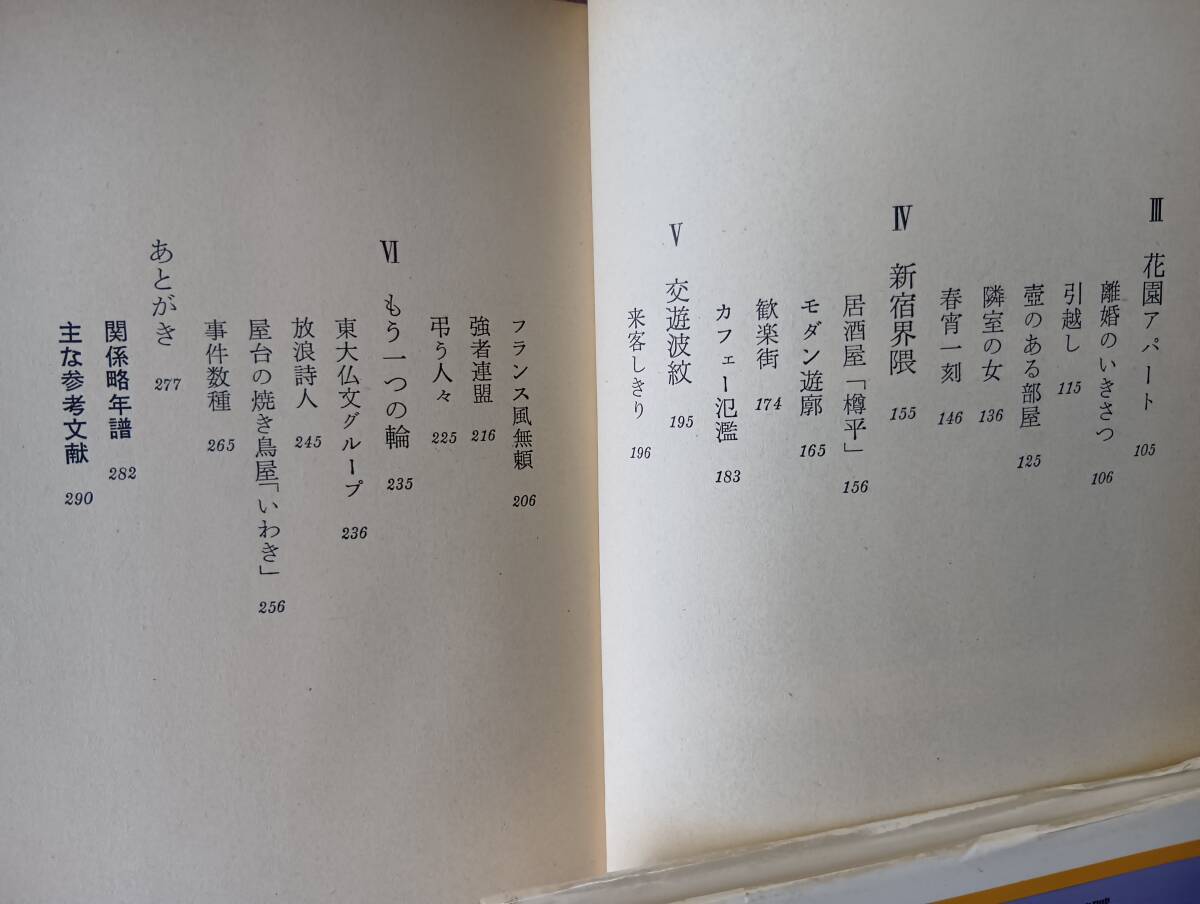 Ⅲ 花園アパート 105
離婚のいきさつ 106
引越し 115
壺のある部屋 125
隣室の女 136
春宵一刻 146
Ⅳ 新宿界隈 155
居酒屋「樽平」 156
モダン遊廓 165
歓楽街 174
カフェー氾濫 183
Ⅴ 交遊波紋 195
来客しきり 196
フランス風無頼 206
強者連盟 216
弔う人々 225
Ⅵ もう一つの輪 235
東大仏文グループ 236
放浪詩人 245
屋台の焼き鳥屋「いわき」 256
事件数種 265
あとがき 277
関係略年譜 282
主な参考文献 290